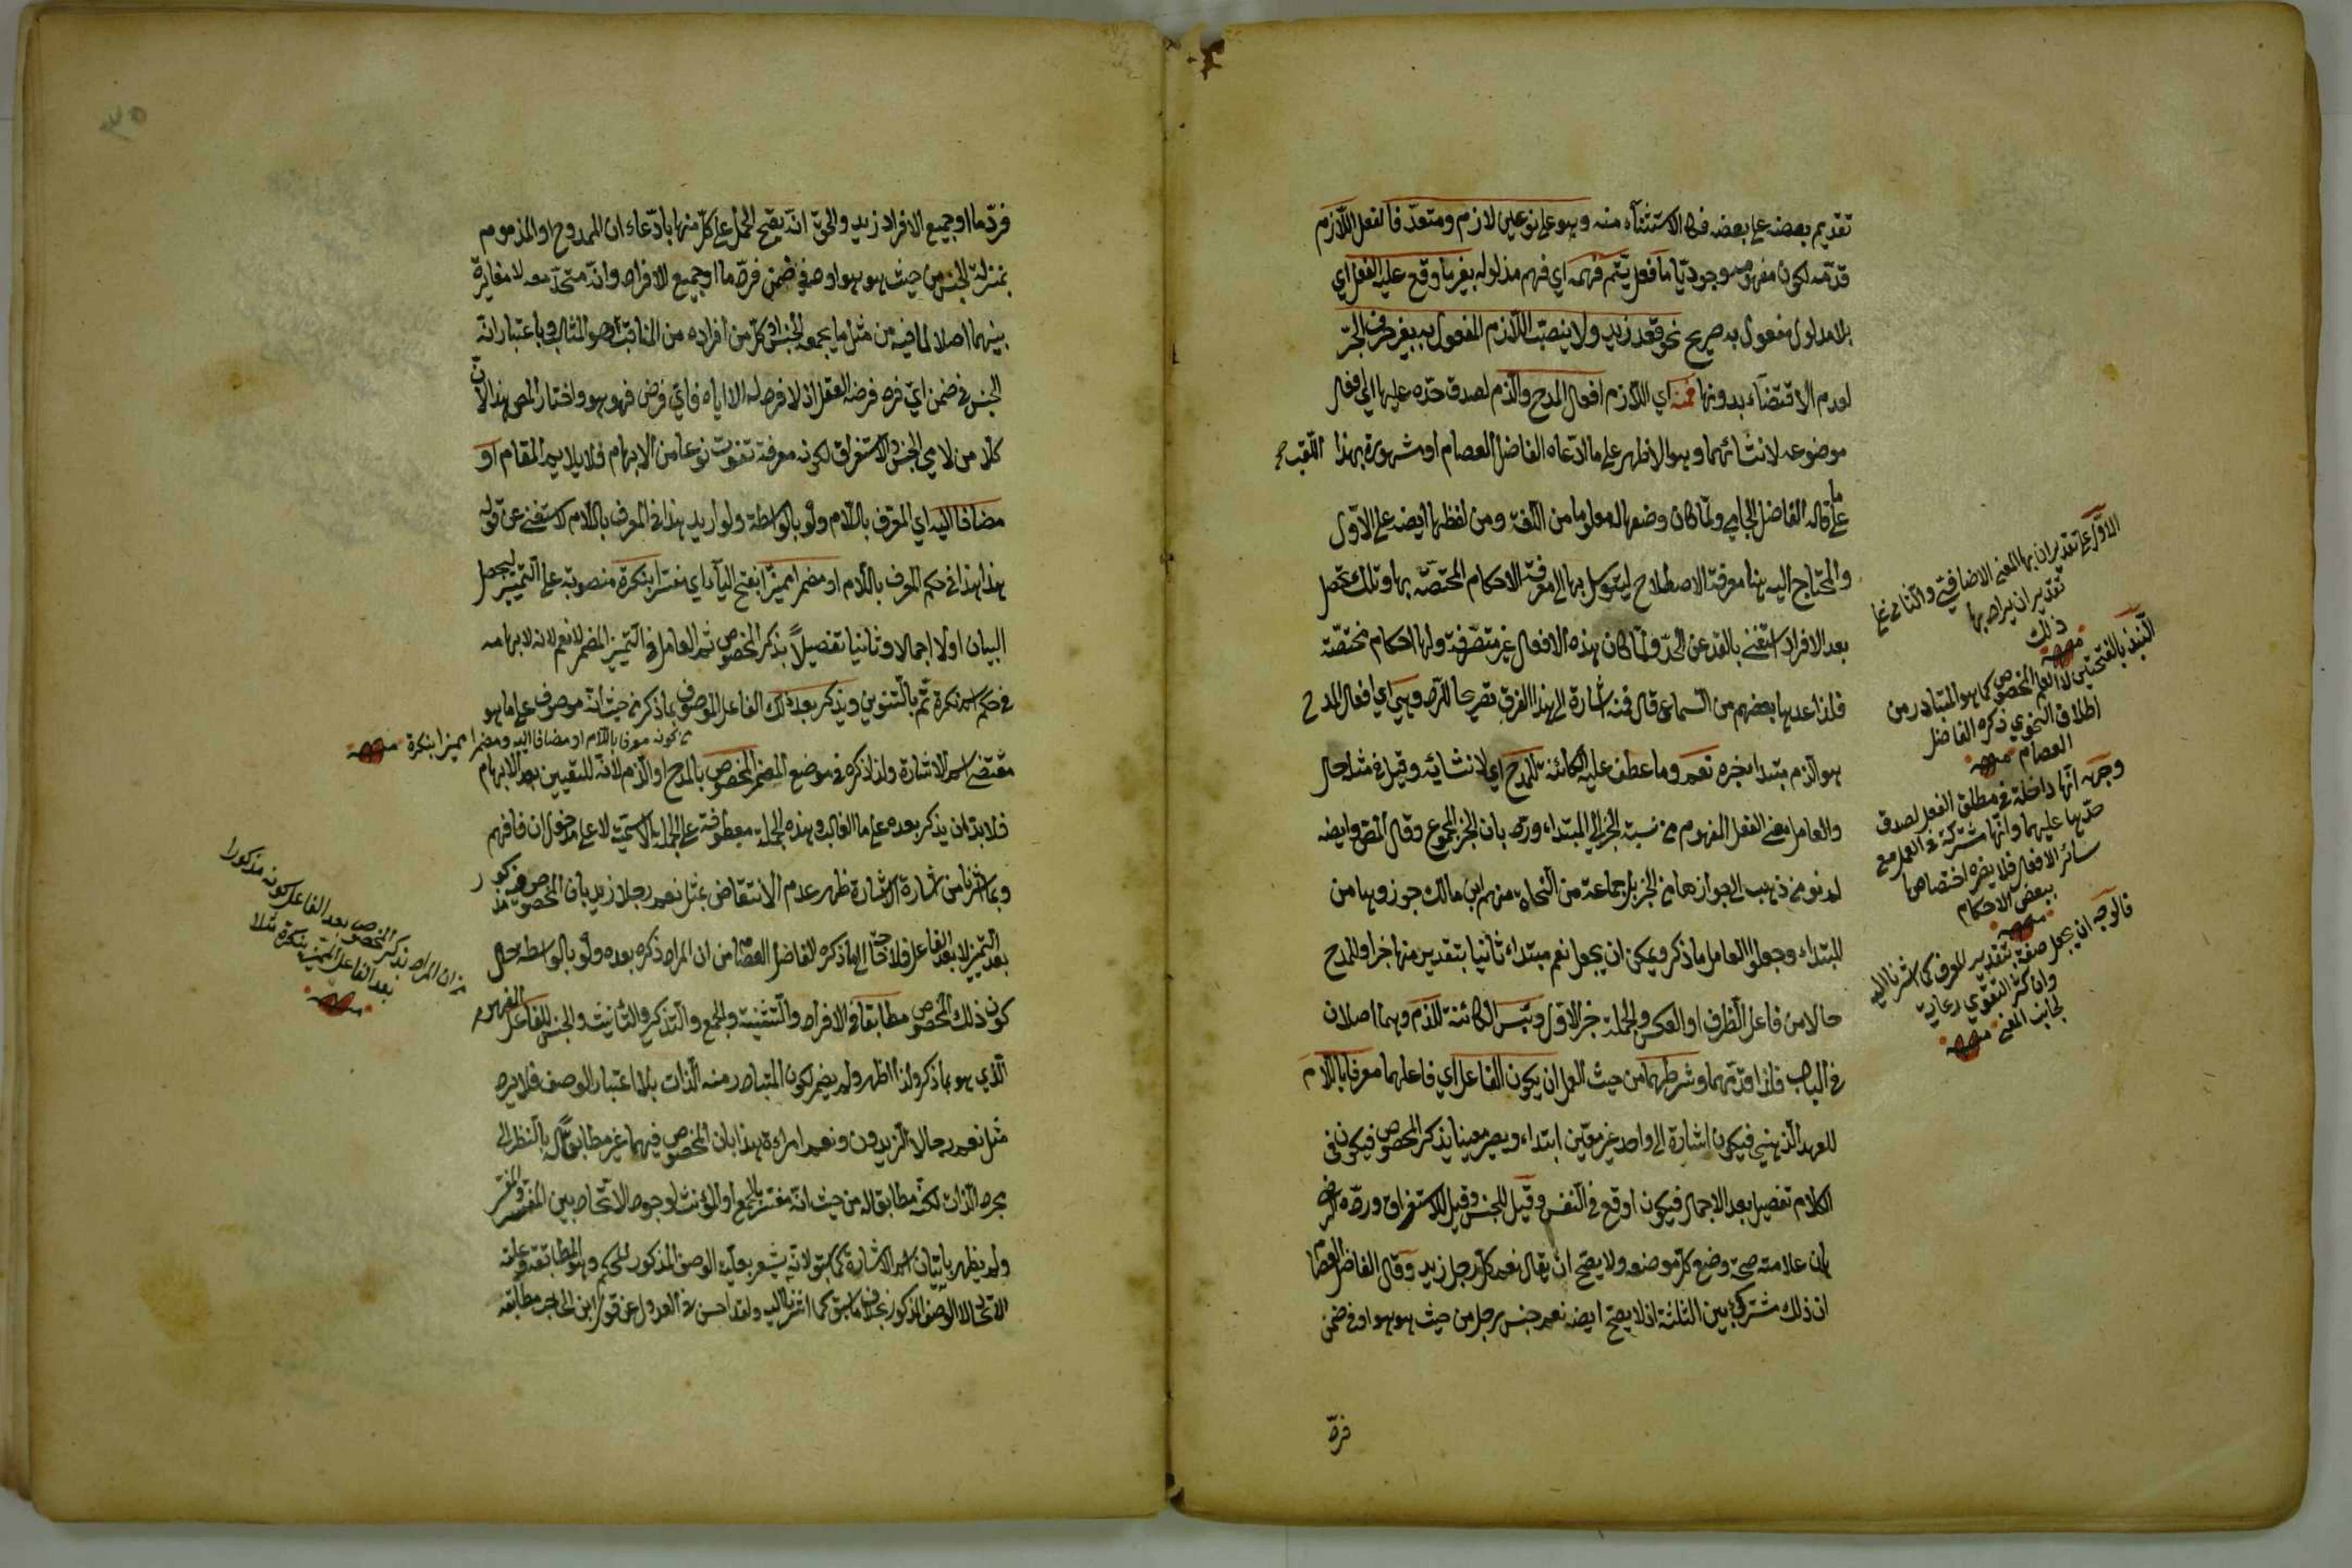 تقديم بعضه على بعضه في الاستثناء منه وهو على نوعين لازم ومتعد فالفعل اللازم
قدمه لكون مفهومه وجوديا ما فعل يتم فهمه اي فهم مدلوله بغير ما وقع عليه الفعل اي
بلا مدلول مفعول به صريح نحو قعد زيد ولا ينصب اللازم المفعول به بغير حرف الجر
لعدم الاقتضاء بدونها فمنه اي اللازم افعال المدح والذم لصدق حده عليها اي افعال
موضوعه لانشائهما وهو الاظهر على ما ادعاه الفاضل العصام او مشهورة بهذا اللقب
على ما قاله الفاضل الجامي ولما كان وضعها معلوما من اللغة ومن لفظها ايضه على الاول
والمحتاج اليه هنا معرفة الاصطلاح ليتوسل بها الى معرفة الاحكام المختصة بها وتلك تحصل
بعد الافراد استغنى بالعد عن الحد ولما كان هذه الافعال غير متصرفة ولها احكام مختصة
فلذا عدها بعضهم من السماعي قال فمنه اشارة الى هذا الفرق تصريحا للرد وهي اي افعال المدح
هو الذم مبتدا خبره نعم وما عطف عليه الكائنة للمدح اي لانشائه وقيل في مثله حال
والعامل معنى الفعل المفهوم من نسبة الخبر الى المبتداء ورد بان الخبر المجموع وقال المص وايضه
لم نر من ذهب الى جوازها من الخبر بل جماعة من النحاة منهم ابن مالك جوزوها من
المبتداء وجعلوا العامل ما ذكر ويمكن ان يجعل نعم مبتداء ثانيا بتقدير منها خبرا وللمدح
حالا من فاعل الظرف او العكس والجملة خبر الاول وبئس الكائنة للذم وهما اصلان
في الباب فلذا قدمهما وشرطهما من حيث العمل ان يكون الفاعل اي فاعلهما معرفا باللام
للعهد الذهني فيكون اشارة الى واحد غير معين ابتداء ويصير معينا بذكر المخصوص فيكون في
الكلام تفصيل بعد الاجمال فيكون اوقع في النفس وقيل للجنس وقيل للاستغراق ورده الرضي
بان علامته صحة وضع كل موضعه ولا يصح ان يقال نعم كل رجل زيد وقال الفاضل العصام
ان ذلك مشترك بين الثلثة اذ لا يصح ايضه نعم جنس رجل من حيث هو هو او في ضمن
فرد
الاول على تقدير ان بها المعنى الاضافي والثاني على
تقدير ان يراد بها
ذلك
منه
بالفتحتين لا العلم المخصوص كما هو المتبادر من
اطلاق النحوي ذكره الفاضل
العصام منه
وجه انها داخلة في مطلق الفعل لصدق
حدها عليهما وانها مشتركة في العمل مع
سائر الافعال فلا يضره اختصاصها
ببعض الاحكام
منه
فالوجه ان يجعل صفة بتقدير المعرف كما اشرنا اليه
وان كثر التقوي رعاية
لجانب المعنى منه
فرد ما او جميع الافراد زيد والحق انه يصح الحمل على كل منها بادعاء ان الممدوح او المذموم
بمنزلة الجنس من حيث هو هو او في ضمن فرد ما او جميع الافراد وانه متحد معه لا مغايرة
بينهما اصلا لما فيه من مثل ما يجمعه الجنس او كل من افراده من المناقب او المثالب وباعتبار انه
الجنس في ضمن اي فرد فرضه العقل اذ لا فرد له الا اياه فاي فرض فهو هو واختار المص هذا لان
كلا من لامي الجنس والاستغراق لكونه معرفة تفوت نوعا من الابهام فلا يلايم المقام او
مضافا اليه اي المعرف باللام ولو بالواسطة ولو اريد هذا في المعرف باللام لاستغنى عن قوله
هذا هذا في حكم المعرف باللام او مضمرا مميزا بفتح الياء اي مفسرا بنكرة منصوبة على التمييز ليحصل
البيان اولا اجمالا وثانيا تفصيلا بذكر المخصوص ثم العامل في التمييز المضمر لا نعم لانه لابهامه
في حكم اسم نكرة تم بالتنوين ويذكر بعد ذلك الفاعل الموصوف بما ذكر من حيث انه موصوف على ما هو
من كونه معرفا باللام او مضافا اليه ومضمرا مميزا بنكرة منه
مقتضى اسم الاشارة ولذا ذكره في موضع المضمر المخصوص بالمدح او الذم لانه للتعيين بعد الابهام
فلا بد ان يذكر بعده على ما الغالب وهذه الجملة معطوفة على الجملة الاسمية لا على مدخول ان فافهم
وبما اشرنا من اشارة الاشارة ظهر عدم الانتقاض بمثل نعم رجلا زيد بان المخصوص مذكور
بعد التمييز لا بعد الفاعل فلا حاجة الى ما ذكره الفاضل العصام من ان المراد ذكره بعده ولو بالواسطه حال
كون ذلك المخصوص مطابقا في الافراد والتثنية والجمع والتذكير والتأنيث والجنس للفاعل المفهوم
الذي هو بما ذكر ولذا اظهر ولم يضمر لكون المتبادر منه الذات بلا اعتبار الوصف فلا يرد
مثل نعم رجالا الزيدون ونعم امراءة هذا بان المخصوص فيهما غير مطابق له بالنظر الى
مجرد الذات لكنه مطابق له من حيث انه مفسر بالجمع او المؤنث لوجود الاتحاد بين المفسر والمفسر
ولم يظهر باتيان اسم الاشارة كما سبق لانه يشعر بعلية الوصف المذكور للحكم وهو المطابقة وعلته
الاتحاد لا الوصف المذكور بخلاف ما سبق كما اشرنا اليه ولقد احسن في العدول عن قول ابن الحاجب مطابقة
من ان المراد بذكر المخصوص بعد الفاعل كونه مذكورا
بعد الفاعل المميز بنكرة مثلا
منه